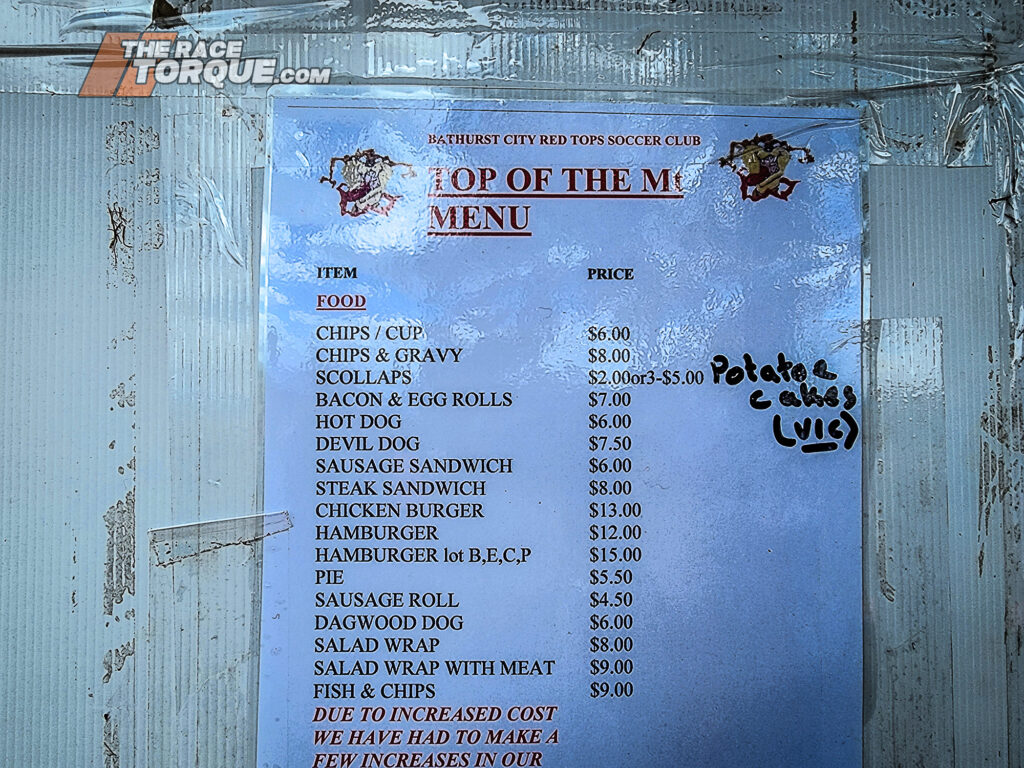 THE RACE
TORQUE.COM
BATHURST CITY RED TOPS SOCCER CLUB
TOP OF THE Mt
MENU
ITEM PRICE
FOOD
CHIPS / CUP $6.00
CHIPS & GRAVY $8.00
SCOLLAPS $2.00or3-$5.00 Potatoe
cakes
(VIC)
BACON & EGG ROLLS $7.00
HOT DOG $6.00
DEVIL DOG $7.50
SAUSAGE SANDWICH $6.00
STEAK SANDWICH $8.00
CHICKEN BURGER $13.00
HAMBURGER $12.00
HAMBURGER lot B,E,C,P $15.00
PIE $5.50
SAUSAGE ROLL $4.50
DAGWOOD DOG $6.00
SALAD WRAP $8.00
SALAD WRAP WITH MEAT $9.00
FISH & CHIPS $9.00
DUE TO INCREASED COST
WE HAVE HAD TO MAKE A
FEW INCREASES IN OUR